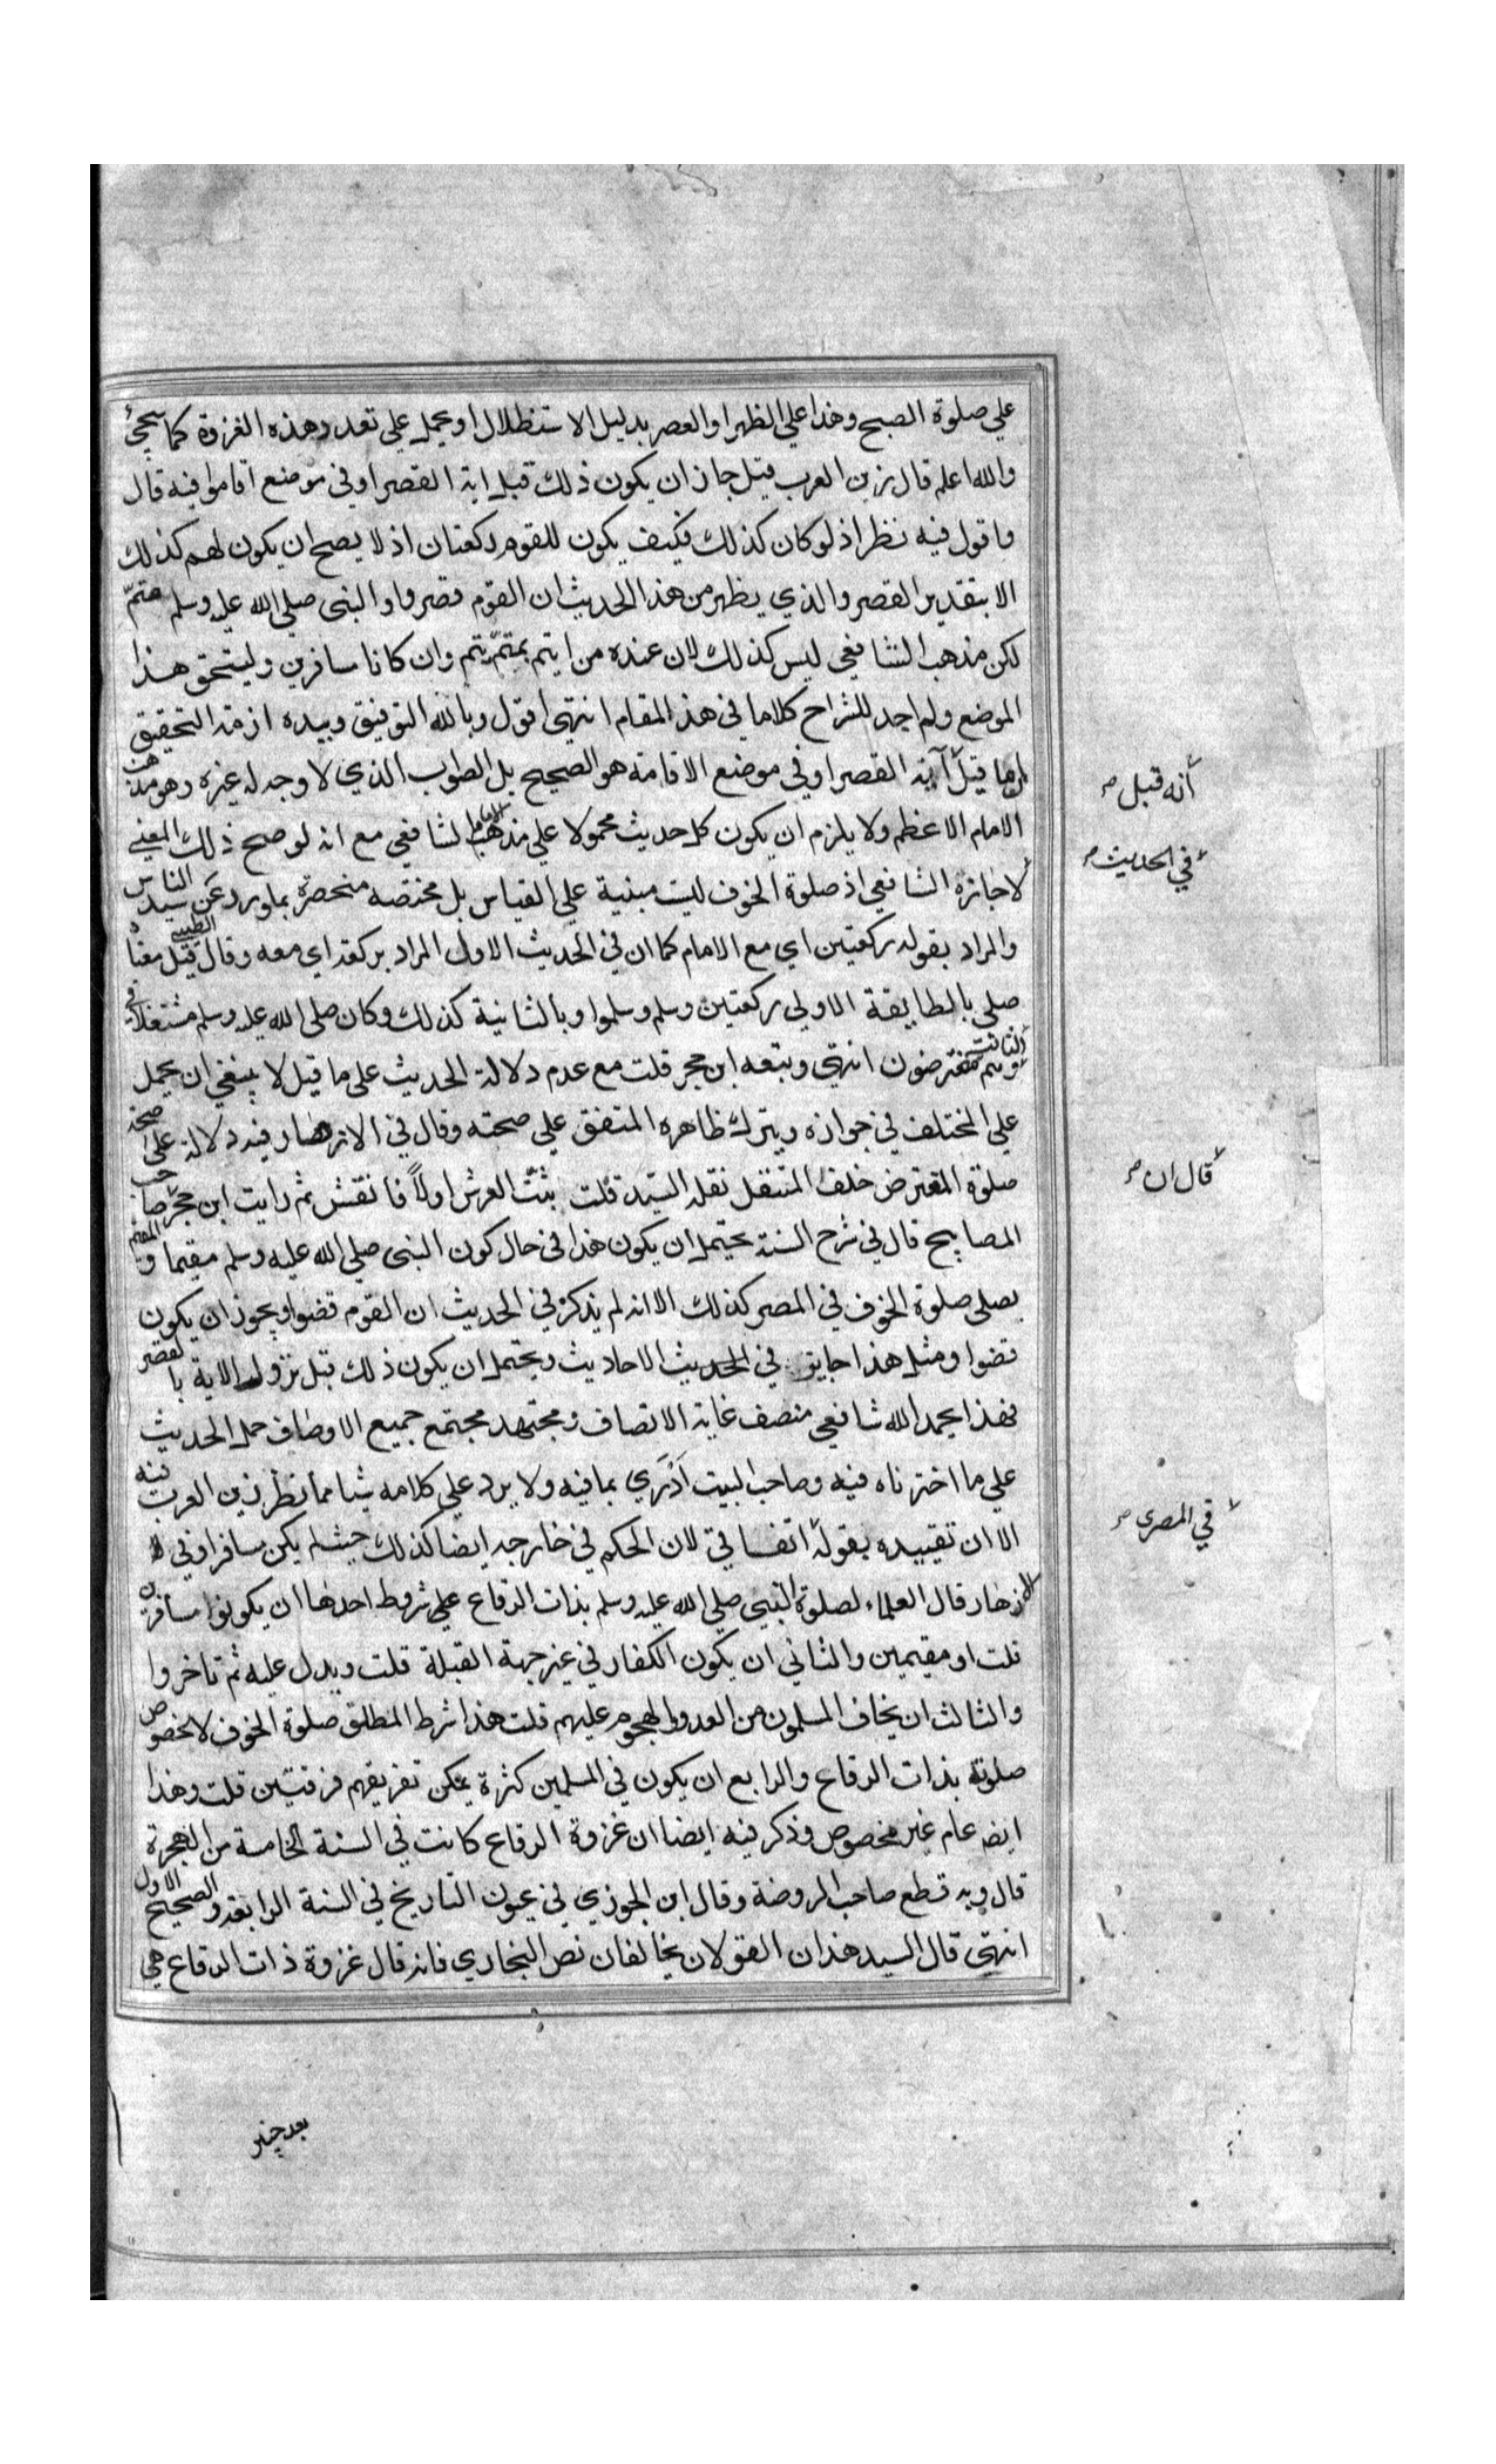 علي صلوة الصبح وهذا علي الظهر او العصر بدليل الاستظلال او يحمل علي تعدد هذه الغزوة كما سيجئ
والله اعلم قال زين العرب قيل جاز ان يكون ذلك قبل اية القصر او في موضع اقاموا فيه قال
واقول فيه نظر اذ لو كان كذلك فكيف يكون للقوم ركعتان اذ لا يصح ان يكون لهم كذلك
الا بتقدير القصر والذي يظهر من هذا الحديث ان القوم قصروا والنبي صلي الله عليه وسلم متمّ
لكن مذهب الشافعي ليس كذلك لان عنده من ايتم بمتمّ يتم وان كانا مسافرين وليتحقق هذا
الموضع ولم اجد للشراح كلاما في هذا المقام انتهي اقول وبالله التوفيق وبيده ازمة التحقيق
ما قيل آية القصر او في موضع الاقامة هو الصحيح بل الصواب الذي لا وجه له غيره وهو مذهب
الامام الاعظم ولا يلزم ان يكون كل حديث محمولا علي مذهب الامام الشافعي مع انه لو صح ذلك المعني
لاجازه الشافعي اذ صلوة الخوف ليست مبنية علي القياس بل مختصه منحصرة بما ورد عن سيد الناس
والمراد بقوله ركعتين اي مع الامام كما ان في الحديث الاول المراد بركعة اي معه وقال الطيبي قيل معنا
صلي بالطايفة الاولي ركعتين وسلم وسلموا وبالثانية كذلك وكان صلي الله عليه وسلم متنفلا في
الثانية وهم مفترضون انتهي وتبعه ابن حجر قلت مع عدم دلالة الحديث علي ما قيل لا ينبغي ان يحمل
علي المختلف في جوازه ويترك ظاهره المتفق علي صحته وقال في الازهار فيه دلالة علي صحة
صلوة المفترض خلف المتنفل نقله السيد قلت ثبّت العرش اولاً فانقش ثم رايت ابن حجر صاحب
المصابيح قال في شرح السنة يحتمل ان يكون هذا في حال كون النبي صلي الله عليه وسلم مقيما والمقيم
يصلي صلوة الخوف في المصر كذلك الا انه لم يذكر في الحديث ان القوم قضوا ويجوز ان يكون
قضوا ومثل هذا جايز في الحديث الاحاديث ويحتمل ان يكون ذلك قبل نزول الاية بالقصر
فهذا بحمد الله شافعي منصف غاية الانصاف ومجتهد مجتمع جميع الاوصاف حمل الحديث
علي ما اخترناه فيه وصاحب البيت اَدْرَي بما فيه ولا يرد علي كلامه شيئا مما نظر زين العرب فيه
الا ان تقييده بقوله اتفاقي لان الحكم في خارجه ايضا كذلك حيث لم يكن مسافرا وفي
الازهار قال العلماء لصلوة النبي صلي الله عليه وسلم بذات الرقاع علي شروط احدها ان يكونوا مسافرين
قلت او مقيمين والثاني ان يكون الكفار في غير جهة القبلة قلت ويدل عليه ثم تاخروا
والثالث ان يخاف المسلمون من العدو الهجوم عليهم قلت هذا شرط المطلق صلوة الخوف لا لخصوص
صلوته بذات الرقاع والرابع ان يكون في المسلمين كثرة يمكن تفريقهم فرقتين قلت وهذا
ايضه عام غير مخصوص وذكر فيه ايضا ان غزوة الرقاع كانت في السنة الخامسة من الهجرة
قال وبه قطع صاحب الروضة وقال ابن الجوزي في عيون التاريخ في السنة الرابعة والصحيح الاول
انتهي قال السيد هذان القولان يخالفان نص البخاري فانه قال غزوة ذات الرقاع هي
أنه قبل
في الحديث
قال ان
في المصر
بعد خيبر